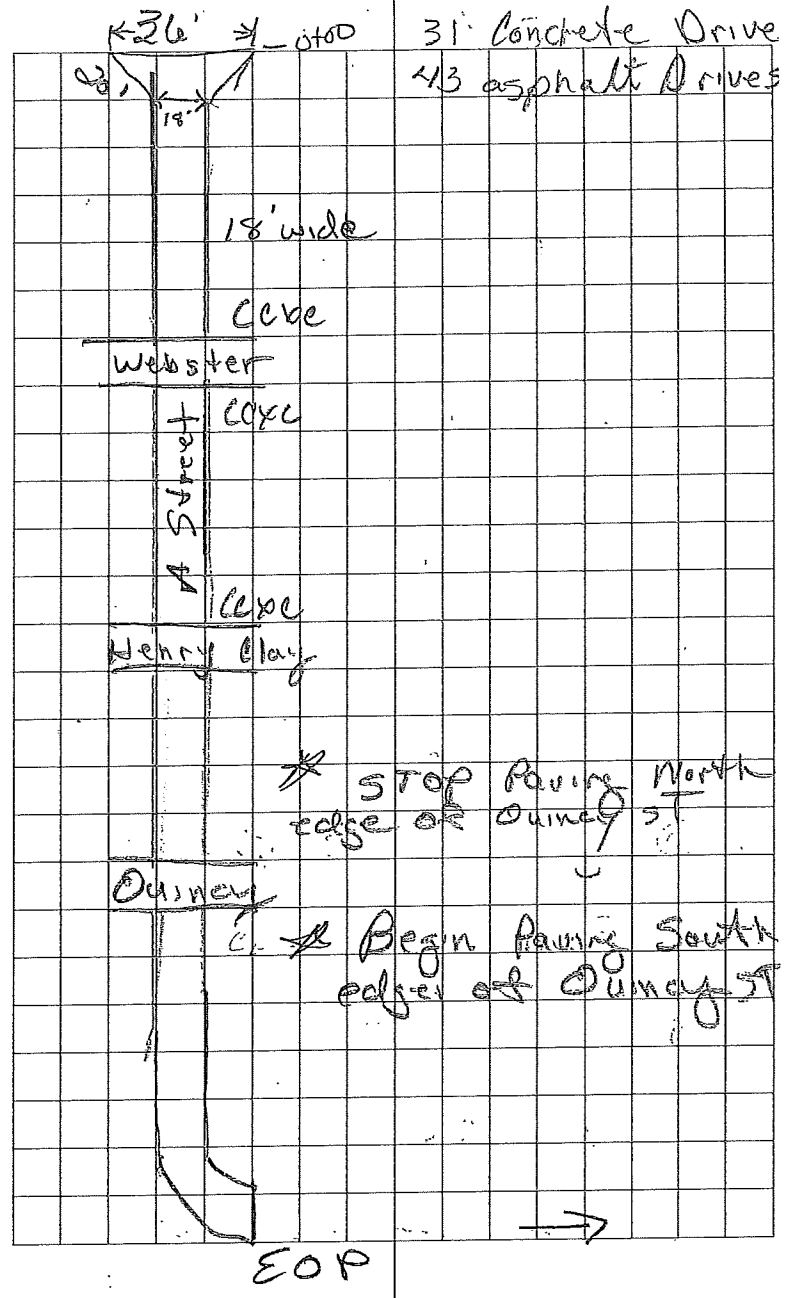 36' 0+00 31 Concrete Drive
20' 43 asphalt Drives
18'
18' wide
Webster
A Street
Henry Clay
* STOP Paving North
edge of Quincy ST
Quincy
* Begin Paving South
edge of Quincy ST
EOP